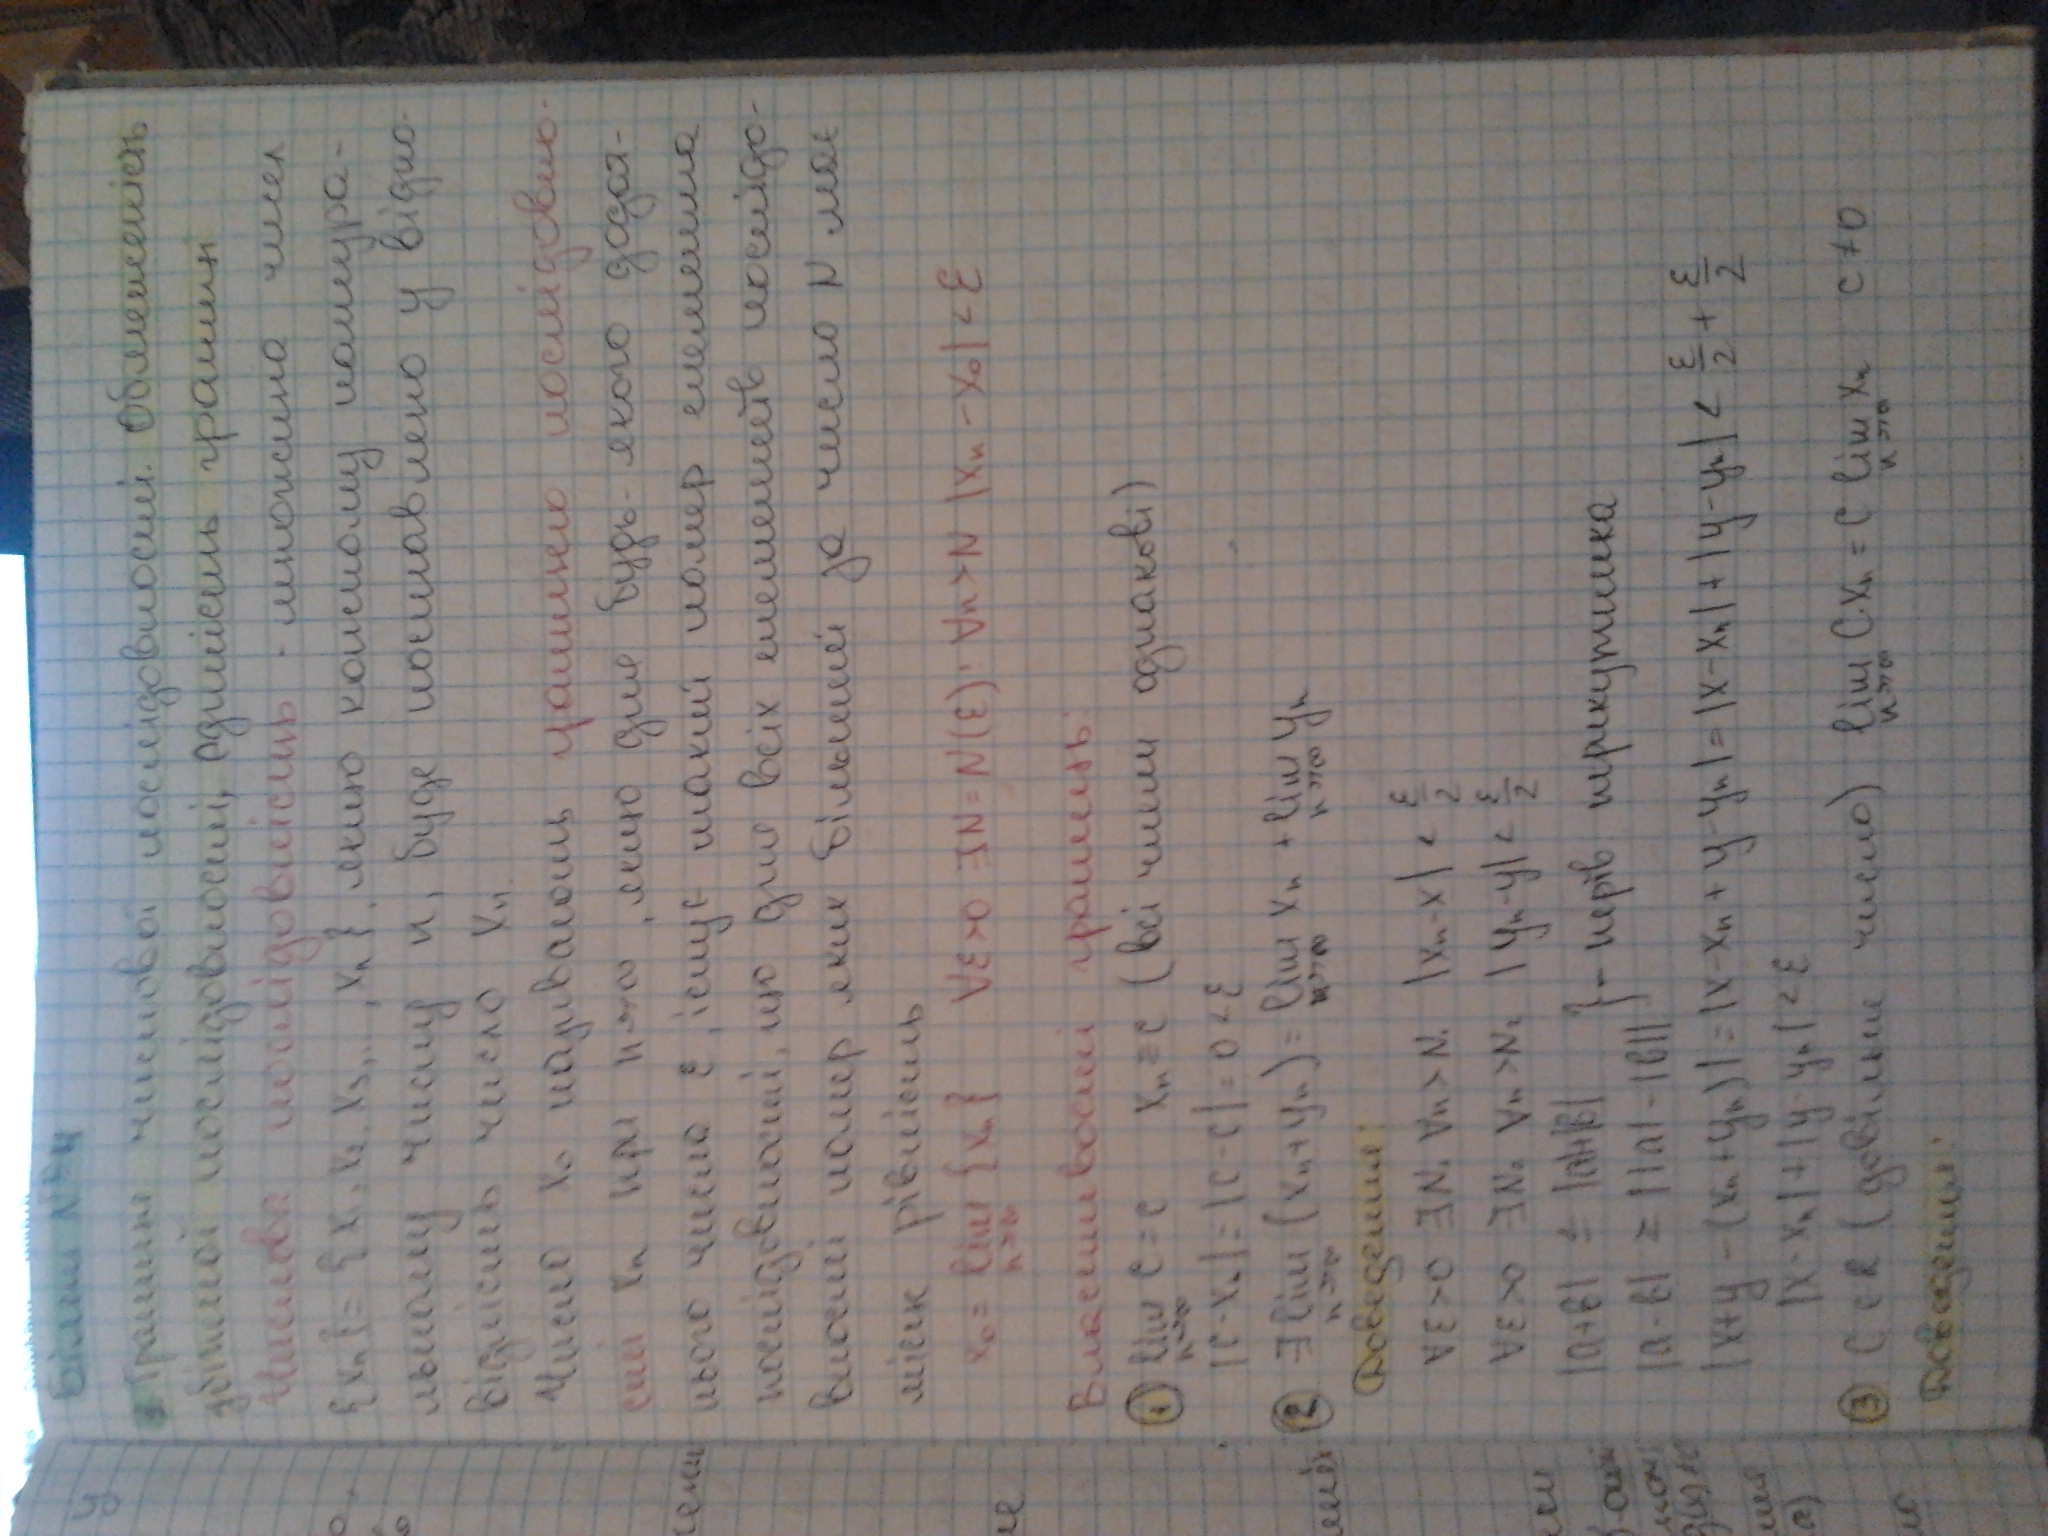 Білет №4
1. Границя числової послідовності. Обмеженість
збіжної послідовності, єдиність границі
Числова послідовність - множина чисел
{xₙ} = {x₁, x₂, x₃, ..., xₙ}, якщо кожному натура-
льному числу n, буде поставлено у відпо-
відність число xₙ.
Число x₀ називають границею послідовно-
сті xₙ при n→∞, якщо для будь-якого додат-
нього число ε, існує такий номер елемента
послідовності, що для всіх елементів послідо-
вності номер яких більший за число N має
місце рівність
x₀ = lim {xₙ} ∀ε>0 ∃N=N(ε): ∀n>N |xₙ - x₀| < ε
n→∞
Властивості границь:
1 lim c = c xₙ = c (всі числа однакові)
n→∞
|c - xₙ| = |c - c| = 0 < ε
2 ∃ lim (xₙ + yₙ) = lim xₙ + lim yₙ
n→∞ n→∞ n→∞
Доведення:
∀ε>0 ∃N₁ ∀n>N₁ |xₙ - x| < ε/2
∀ε>0 ∃N₂ ∀n>N₂ |yₙ - y| < ε/2
|a+b| ≤ |a|+|b|
} - нерів трикутника
|a-b| ≥ ||a| - |b||
|x+y - (xₙ+yₙ)| = |x-xₙ + y-yₙ| = |x-xₙ| + |y-yₙ| < ε/2 + ε/2
|x-xₙ| + |y-yₙ| < ε
3 C ∈ R (довільне число) lim C·xₙ = C lim xₙ c ≠ 0
n→∞ n→∞
Доведення: